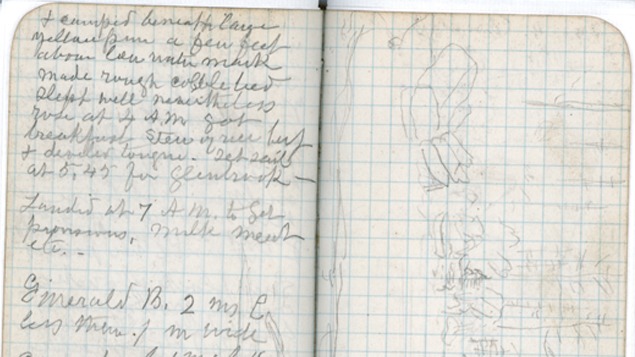 & camped beneath large
yellow pine a few feet
above low water mark
made rough cobble bed
slept well nevertheless
rose at 4 A.M. got
breakfast stew of rice beef
& deviled tongue. Set sail
at 5,45 for Glenbrook —
Landed at 7 A.M. to get
provisions, milk meat
etc. -
Emerald B. 2 ms L
less than 1 m wide